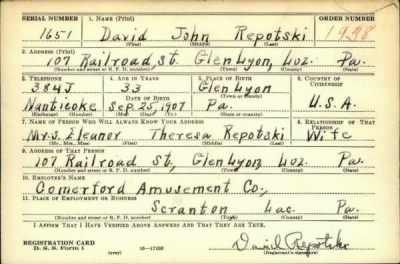 SERIAL NUMBER 1. NAME (Print) ORDER NUMBER
1651 David John Repotski 1928
(First) (Middle) (Last)
2. ADDRESS (Print)
107 Railroad St. Glen Lyon, Luz. Pa.
(Number and street or R. F. D. number) (Town) (County) (State)
3. TELEPHONE 4. AGE IN YEARS 5. PLACE OF BIRTH 6. COUNTRY OF CITIZENSHIP
384J 33 Glen Lyon
DATE OF BIRTH (Town or county)
Nanticoke Sept. 25, 1907 Pa. U.S.A.
(Exchange) (Number) (Mo.) (Day) (Yr.) (State or country)
7. NAME OF PERSON WHO WILL ALWAYS KNOW YOUR ADDRESS 8. RELATIONSHIP OF THAT PERSON
Mrs. Eleanor Theresa Repotski Wife
(Mr., Mrs., Miss) (First) (Middle) (Last)
9. ADDRESS OF THAT PERSON
107 Railroad St, Glen Lyon, Luz. Pa.
(Number and street or R. F. D. number) (Town) (County) (State)
10. EMPLOYER'S NAME
Comerford Amusement Co.,
11. PLACE OF EMPLOYMENT OR BUSINESS
Scranton Lac. Pa.
(Number and street or R. F. D. number) (Town) (County) (State)
I AFFIRM THAT I HAVE VERIFIED ABOVE ANSWERS AND THAT THEY ARE TRUE.
REGISTRATION CARD
D. S. S. Form 1 (over) 16-17105 David Repotski
(Registrant's signature)